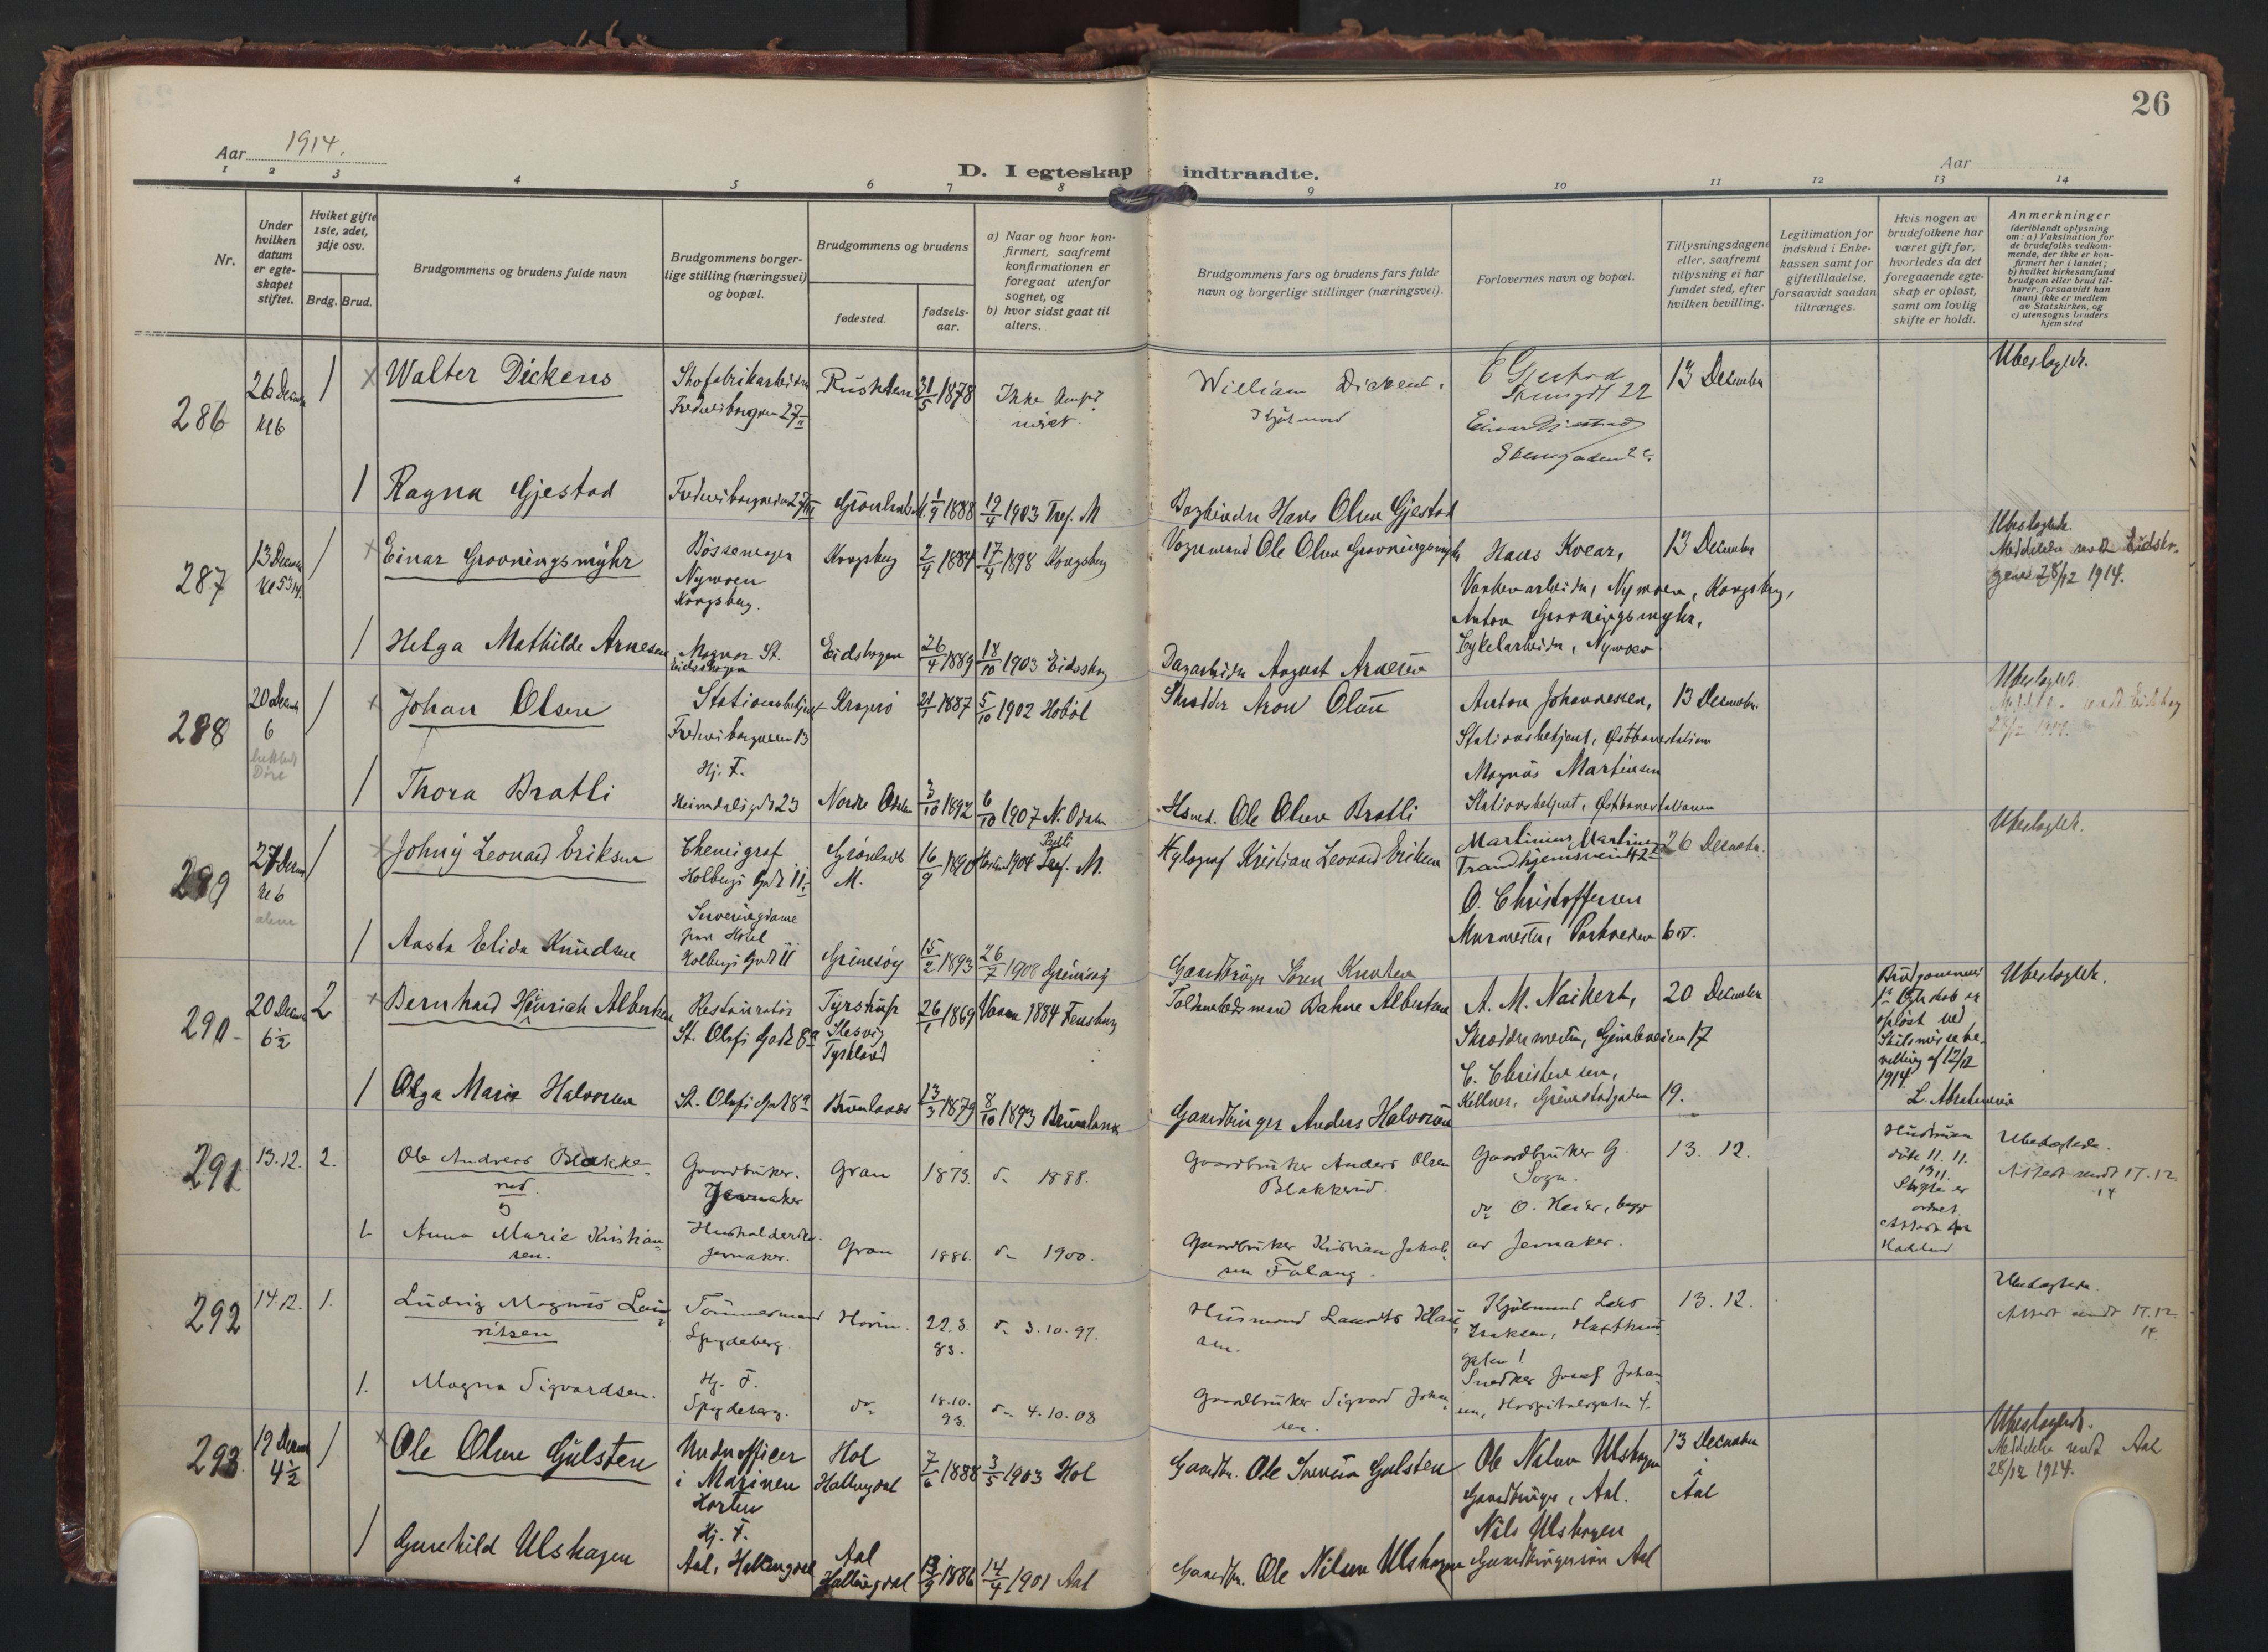 26
Aar 1914.
D. I egteskap indtraadte.
Aar
1 2 3 4 5 6 7 8 9 10 11 12 13 14
Nr.
Under
hvilken
datum
er egte-
skapet
stiftet.
Hvilket gifte
1ste, 2det,
3dje osv.
Brdg. Brud.
Brudgommens og brudens fulde navn
Brudgommens borger-
lige stilling (næringsvei)
og bopæl.
Brudgommens og brudens
fødested.
fødsels-
aar.
a) Naar og hvor kon-
firmert, saafremt
konfirmationen er
foregaat utenfor
sognet, og
b) hvor sidst gaat til
alters.
Brudgommens fars og brudens fars fulde
navn og borgerlige stillinger (næringsvei).
Forlovernes navn og bopæl.
Tillysningsdagene
eller, saafremt
tillysning ei har
fundet sted, efter
hvilken bevilling.
Legitimation for
indskud i Enke-
kassen samt for
giftetilladelse,
forsaavidt saadan
tiltrænges.
Hvis nogen av
brudefolkene har
været gift før,
hvorledes da det
foregaaende egte-
skap er opløst,
samt om lovlig
skifte er holdt.
Anmerkninger
(deriblandt oplysning
om: a) Vaksination for
de brudefolks vedkom-
mende, der ikke er kon-
firmert her i landet;
b) hvilket kirkesamfund
brudgom eller brud til-
hører, forsaavidt han
(hun) ikke er medlem
av Statskirken, og
c) utensogns bruders
hjemsted
286
26 Decem
Kl 6
1
Walter Dickens
Skofabrikarbeider
Fredensborgveien 27 II
Rushden
31/5 1878
Ikke konfir
meret.
William Dickens.
E Gjestad
22
Einar Gjestad
13 December
Ubeslægtet.
1
Ragna Gjestad
Fredensborgveien 27 III
Grønlands M.
1/9 1888
19/4 1903 Tref. M
Bogbinder Hans Olsen Gjestad
287
13 Decem
Kl 5 3/4
1
Einar Grovningsmyhr
Bøssemager
Nymoen
Kongsberg.
Kongsberg
2/4 1884
17/4 1898 Kongsberg
Vognmand Ole Olsen Grovningsmyhr
Hans Kvear,
Vaabenarbeider, Nymoen, Kongsberg,
Anton Grovningsmyhr,
Cykelarbeider, Nymoen
13 December
Ubeslægtede.
Meddelelse sendt Eidsko-
gen 28/12 1914.
1
Helga Mathilde Arnesen
Magnor St.
Eidskogen
Eidskogen
26/4 1889
18/10 1903 Eidskog
Dagarbeider August Arnesen
288
20 Decem
6
lukkede
Døre
1
Johan Olsen
Stationsbetjent
Fredensborgveien 13
Kragerø
21/1 1887
5/10 1902 Hobøl
Skrædder Aron Olsen
Anton Johannessen,
Stationsbetjent, Østbanestationen
Magnus Martinsen
Stationsbetjent, Østbanestationen
13 December.
Ubeslægtet.
1
Thora Bratli
Hj. F.
Heimdalsgt 23
Nordre Odalen
3/10 1892
6/10 1907 N. Odalen
Hsmd. Ole Olsen Bratli
289
27 Decem
Kl 6
alene
1
Johny Leonard Eriksen
Chemigraf
Holbergs Gade 11
Grønlands
M.
16/9 1890
Høsten 1904 Tref. M.
Xylograf Kristian Leonard Eriksen
Martinius Martinsen
Trondhjemsveien 42
O. Christoffersen
Murmester, Parkveien 6
26 December.
Ubeslægtet.
1
Aasta Elida Knudsen
Serveringsdame
paa Hotel
Holbergs Gade 11
Grimsøy
15/2 1893
26/7 1908 Grimsøy
Gaardbruger Søren Knudsen
290
20 Decem
6 1/2
2
Bernhard Hinrich Albertsen
Restauratør
St. Olafs Gade 8 a
Tyrstrup
Slesvig
Tyskland
26/1 1869
Vaaren 1884 Flensburg
Toldembedsmand Bahne Albertsen
A. M. Naikert,
Skræddermester, Gimleveien 17
C. Christensen,
Kellner, Grimstadgaden 19.
20 December
Brudgommens
1ste Egteskab er
opløst ved
Skilsmissebe-
villing af 12/12
1914.
L. Abrahamsen
Ubeslægtet.
1
Olga Marie Halvorsen
St. Olafs Gade 8 a
Brunlanes
13/3 1879
8/10 1893 Brunlanes
Gaardbruger Anders Halvorsen
291
13.12.
2.
Ole Andreas Blakke-
rud.
Gaardbruker.
Jevnaker
Gran
1873.
do 1888.
Gaardbruker Anders Olsen
Blakkerud.
Gaardbruker G.
Sogn.
do O. Heier, begge
av Jevnaker.
13. 12.
Hustruen
døde 11. 11.
1911.
Skifte er
ordnet.
Attest fra
Hadeland
Ubeslægtede.
Attest sendt 17.12.
14
1.
Anna Marie Kristian-
sen.
Husholderske.
Jevnaker.
Gran
1886.
do 1900.
Gaardbruker Kristian Jakob-
sen Falang.
292
14.12.
1.
Ludvig Magnus Lau-
ritsen
Tømmermand
Spydeberg.
Hovin.
22.3.
83.
do 3.10.97.
Husmand Laurits Klau-
sen.
Kjølmand Lars
Isaksen, Hausmans
gaten 1
Snedker Josef Johan-
sen, Hospitalsgaten 4.
13. 12.
Ubeslægtede.
Attest sendt 17.12.
14.
1.
Magna Sigvardsen.
Hj. F.
Spydeberg.
do
18.10.
93.
do 4.10.08
Gaardbruker Sigvard Johan-
sen.
293
19 Decem
4 1/2
1
Ole Olsen Gulsten
Underofficer
i Marinen
Horten
Hol
Hallingdal
7/6 1888
3/5 1903 Hol
Gaardbr. Ole Svensen Gulsten
Ole Nilsen Ulshagen
Gaardbruger, Aal.
Nils Ulshagen
Gaardbrugersøn Aal
13 December
i
Aal
Ubeslægtede.
Meddelelse sendt Aal
28/12 1914.
1
Gunhild Ulshagen
Hj. F.
Aal, Hallingdal
Aal
Hallingdal
13/9 1886
14/4 1901 Aal
Gaardbr. Ole Nilsen Ulshagen